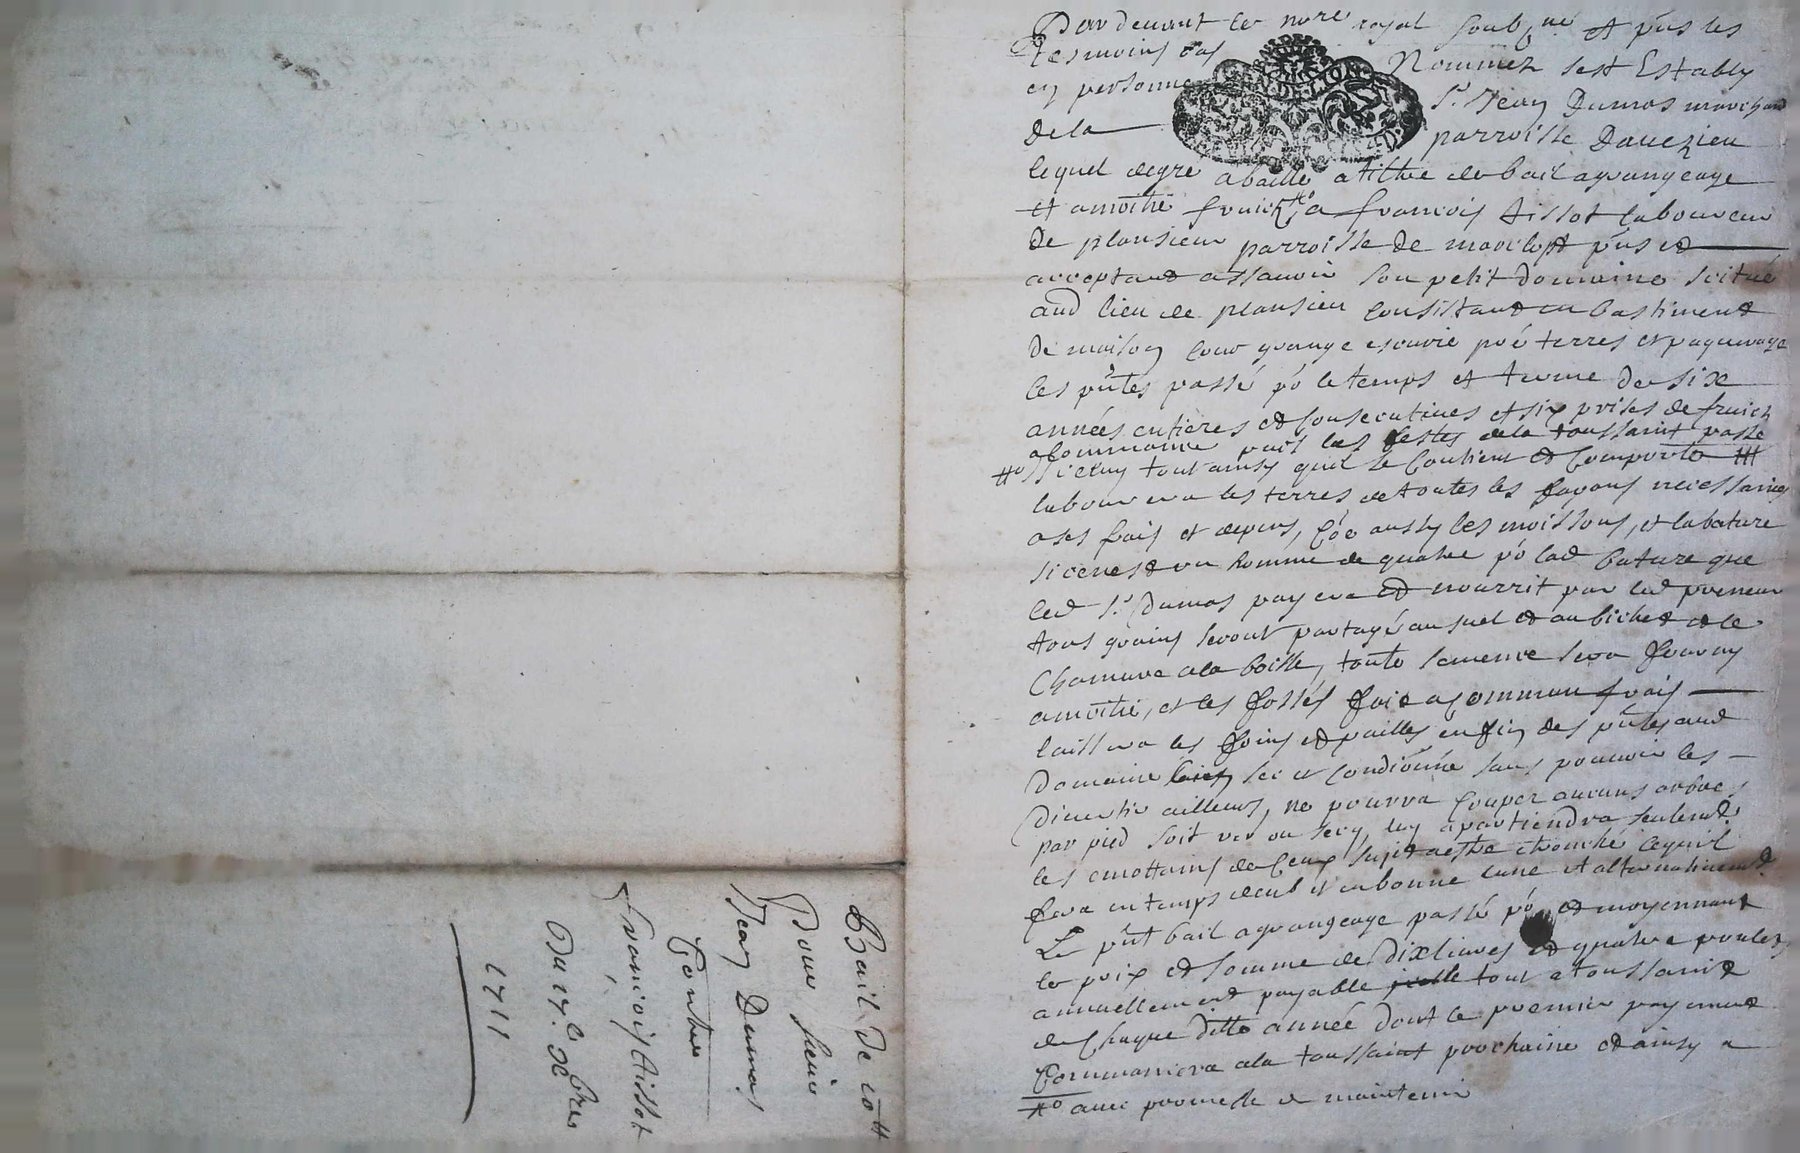 Par devant le nore royal soubne et pns les
tesmoins bas Nommez sest Estably
en personne Sr Jean Dumas marchand
de la parroisse Davezieu
lequel degre a baillé a tiltre de bail a grangeage
et a moitié fruicts a francois tissot laboureur
de plansieu parroisse de pns et
acceptant assavoir son petit domaine scitué
aud lieu de plansieu consistant en bastiment
de maison cour grange escurie pré terres et paquerage
les pntes passé po le temps et terme de six
années entieres et consecutives et six prises de fruicts
a commancé puis les festes de la toussaint passé
icelluy tout ainsy quil se contient et comporte
labourera les terres de toutes les façons necessaires
a ses frais et depens, aussy les moissons, et la bature
si ce nest un homme de quatre po lad bature que
led Sr Dumas payera et nourrit par led preneur
tous grains seront partagé au suel et au bichet et le
Chamure a la boisse, toute semence sera fourny
a moitié, et les fossés faict a commun frais
laissera les foins et pailles en fin des pntes aud
Domaine bien sec et condionné sans pouvoir les
divertir ailleurs, ne pourra couper aucuns arbres
par pied soit ver ou secq, luy apartiendra seulemt
les emottains de ceux sujet a estre etronché lequil
fera en temps deub et en bonne lune et alternativement
Le pnt bail a grangeage passé po et moyennant
le prix et somme de Dix livres et quatre poules
annuellement payable tout a toussaint
de chaque ditte année dont le premier payement
Commancera a la toussaint prochaine et ainsy a
avec promesse de maintenir
Bail de
Pour sieur
Jean Dumas
Contre
François tissot
Du 17e Xbre
1711